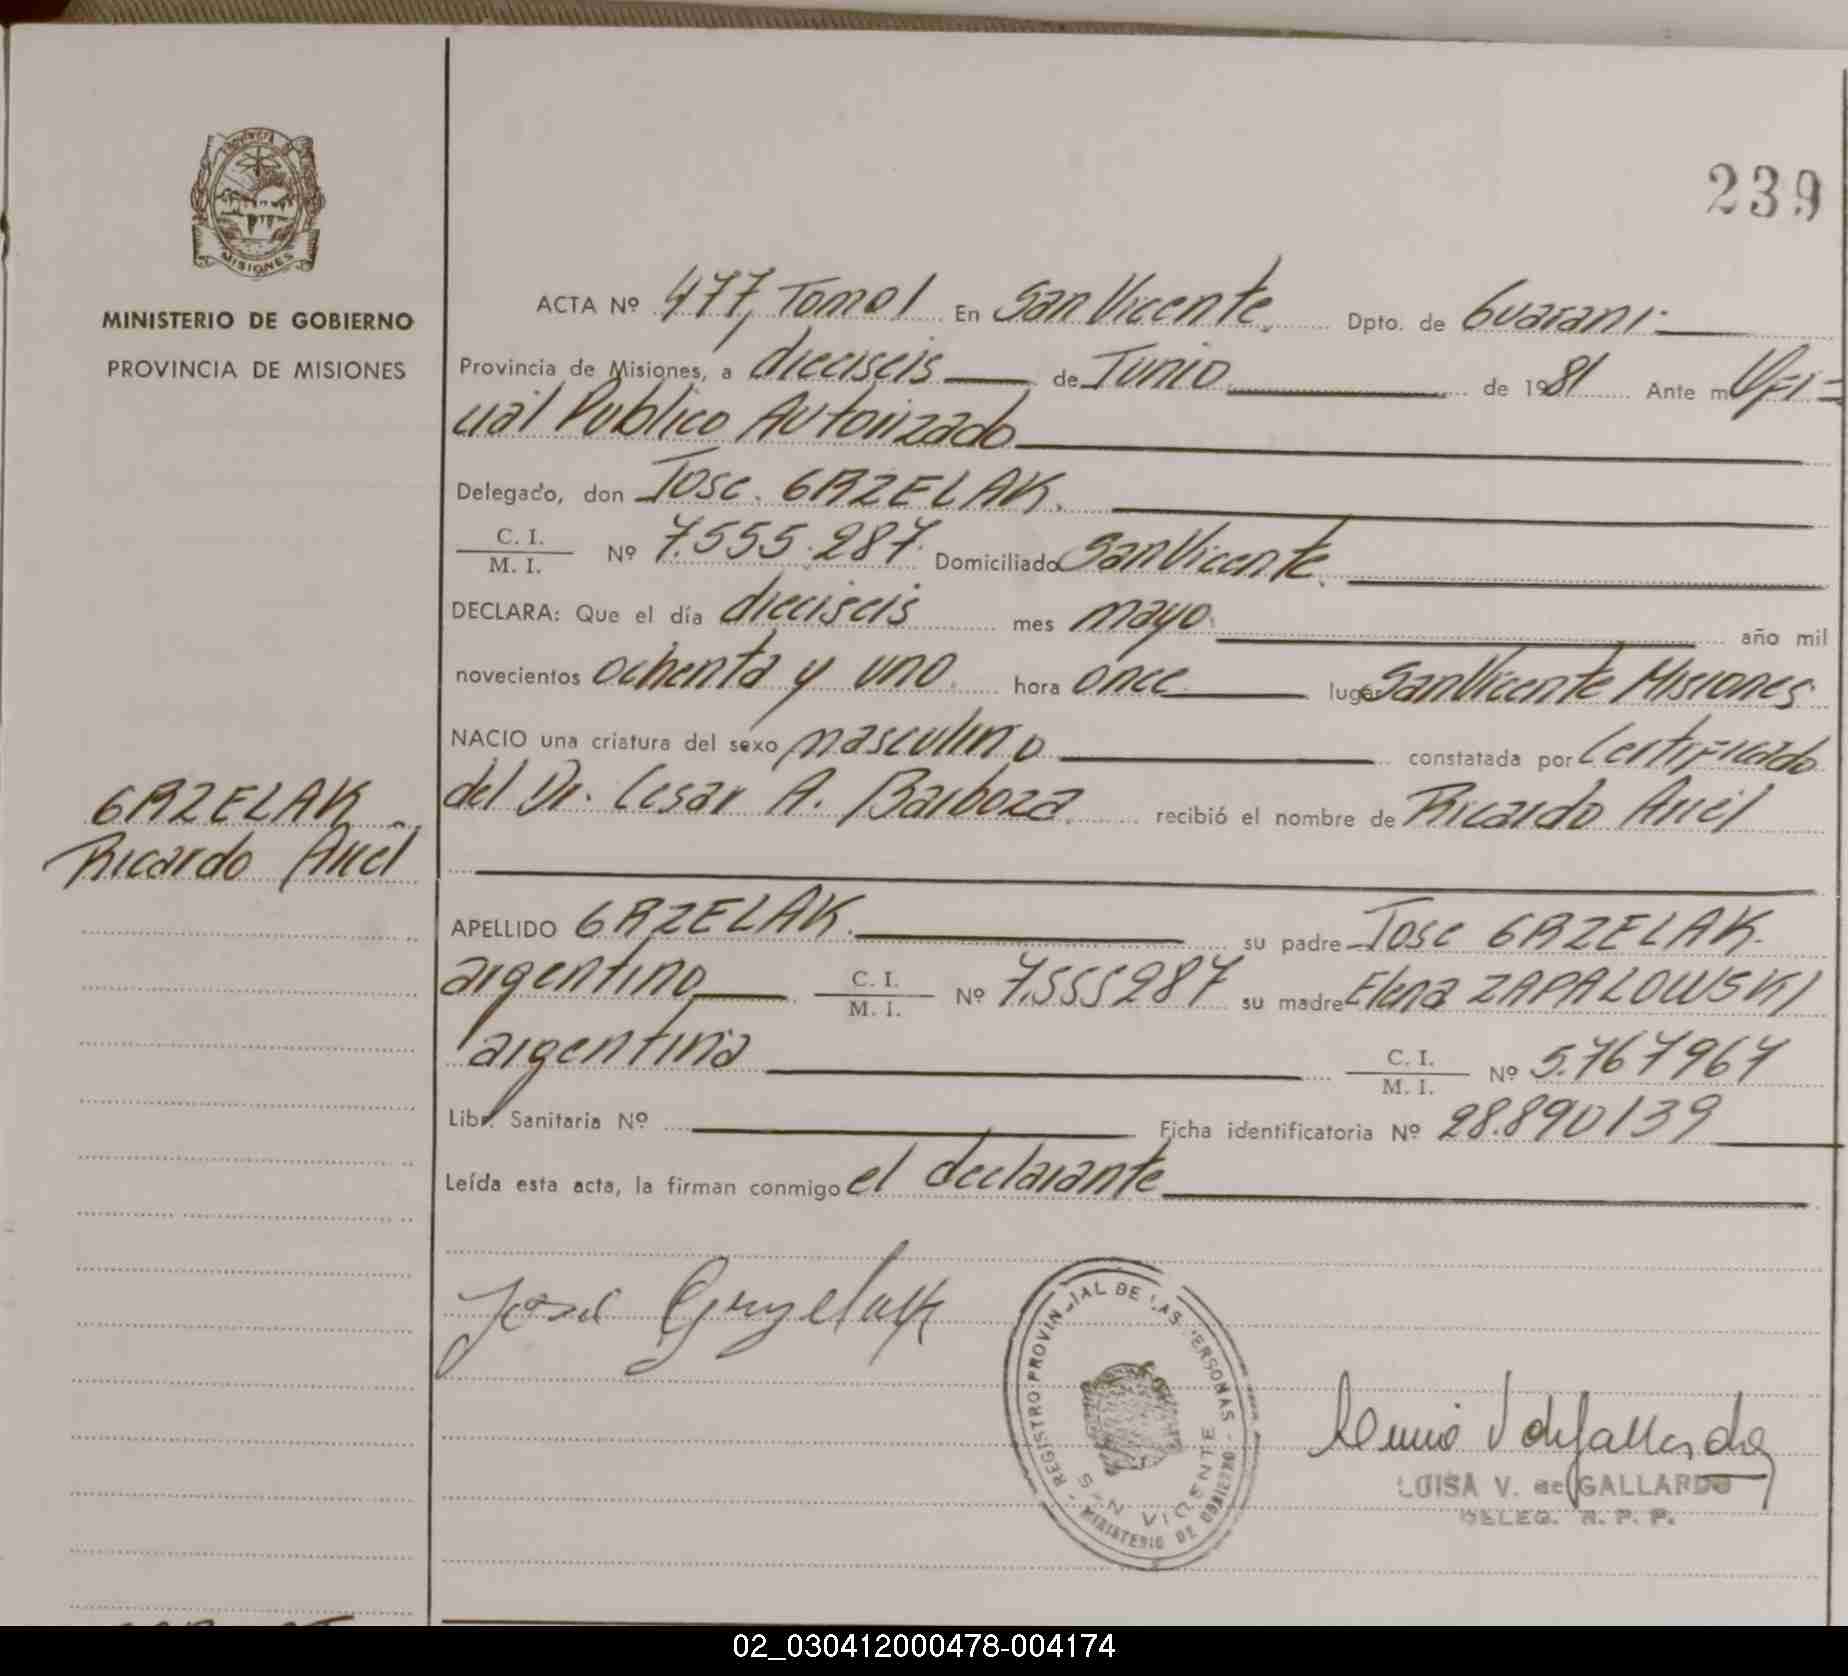 239
PROVINCIA DE
MISIONES
MINISTERIO DE GOBIERNO
PROVINCIA DE MISIONES
ACTA Nº 477, Tomo I En San Vicente. Dpto. de Guarani.
Provincia de Misiones, a dieciseis de Junio de 1981 Ante mi Ofi=
cial Publico Autorizado
Delegado, don Jose GRZELAK.
C. I.
M. I.
Nº 7.555.287. Domiciliado San Vicente.
DECLARA: Que el día dieciseis mes mayo. año mil
novecientos ochenta y uno. hora once lugar San Vicente Misiones
NACIO una criatura del sexo masculino constatada por Certificado
del Dr. Cesar A. Barboza. recibió el nombre de Ricardo Ariel
GRZELAK
Ricardo Ariel
APELLIDO GRZELAK. su padre Jose GRZELAK.
argentino C. I.
M. I.
Nº 7.555287 su madre Elena ZAPALOWSKI
argentina C. I.
M. I.
Nº 5.767967
Libr. Sanitaria Nº Ficha identificatoria Nº 28.890139
Leída esta acta, la firman conmigo el declarante
José Grzelak
REGISTRO PROVINCIAL DE LAS PERSONAS -
SAN VICENTE
- MINISTERIO DE GOBIERNO -
LUISA V. de GALLARDO
DELEG. R. P. P.
02_030412000478-004174